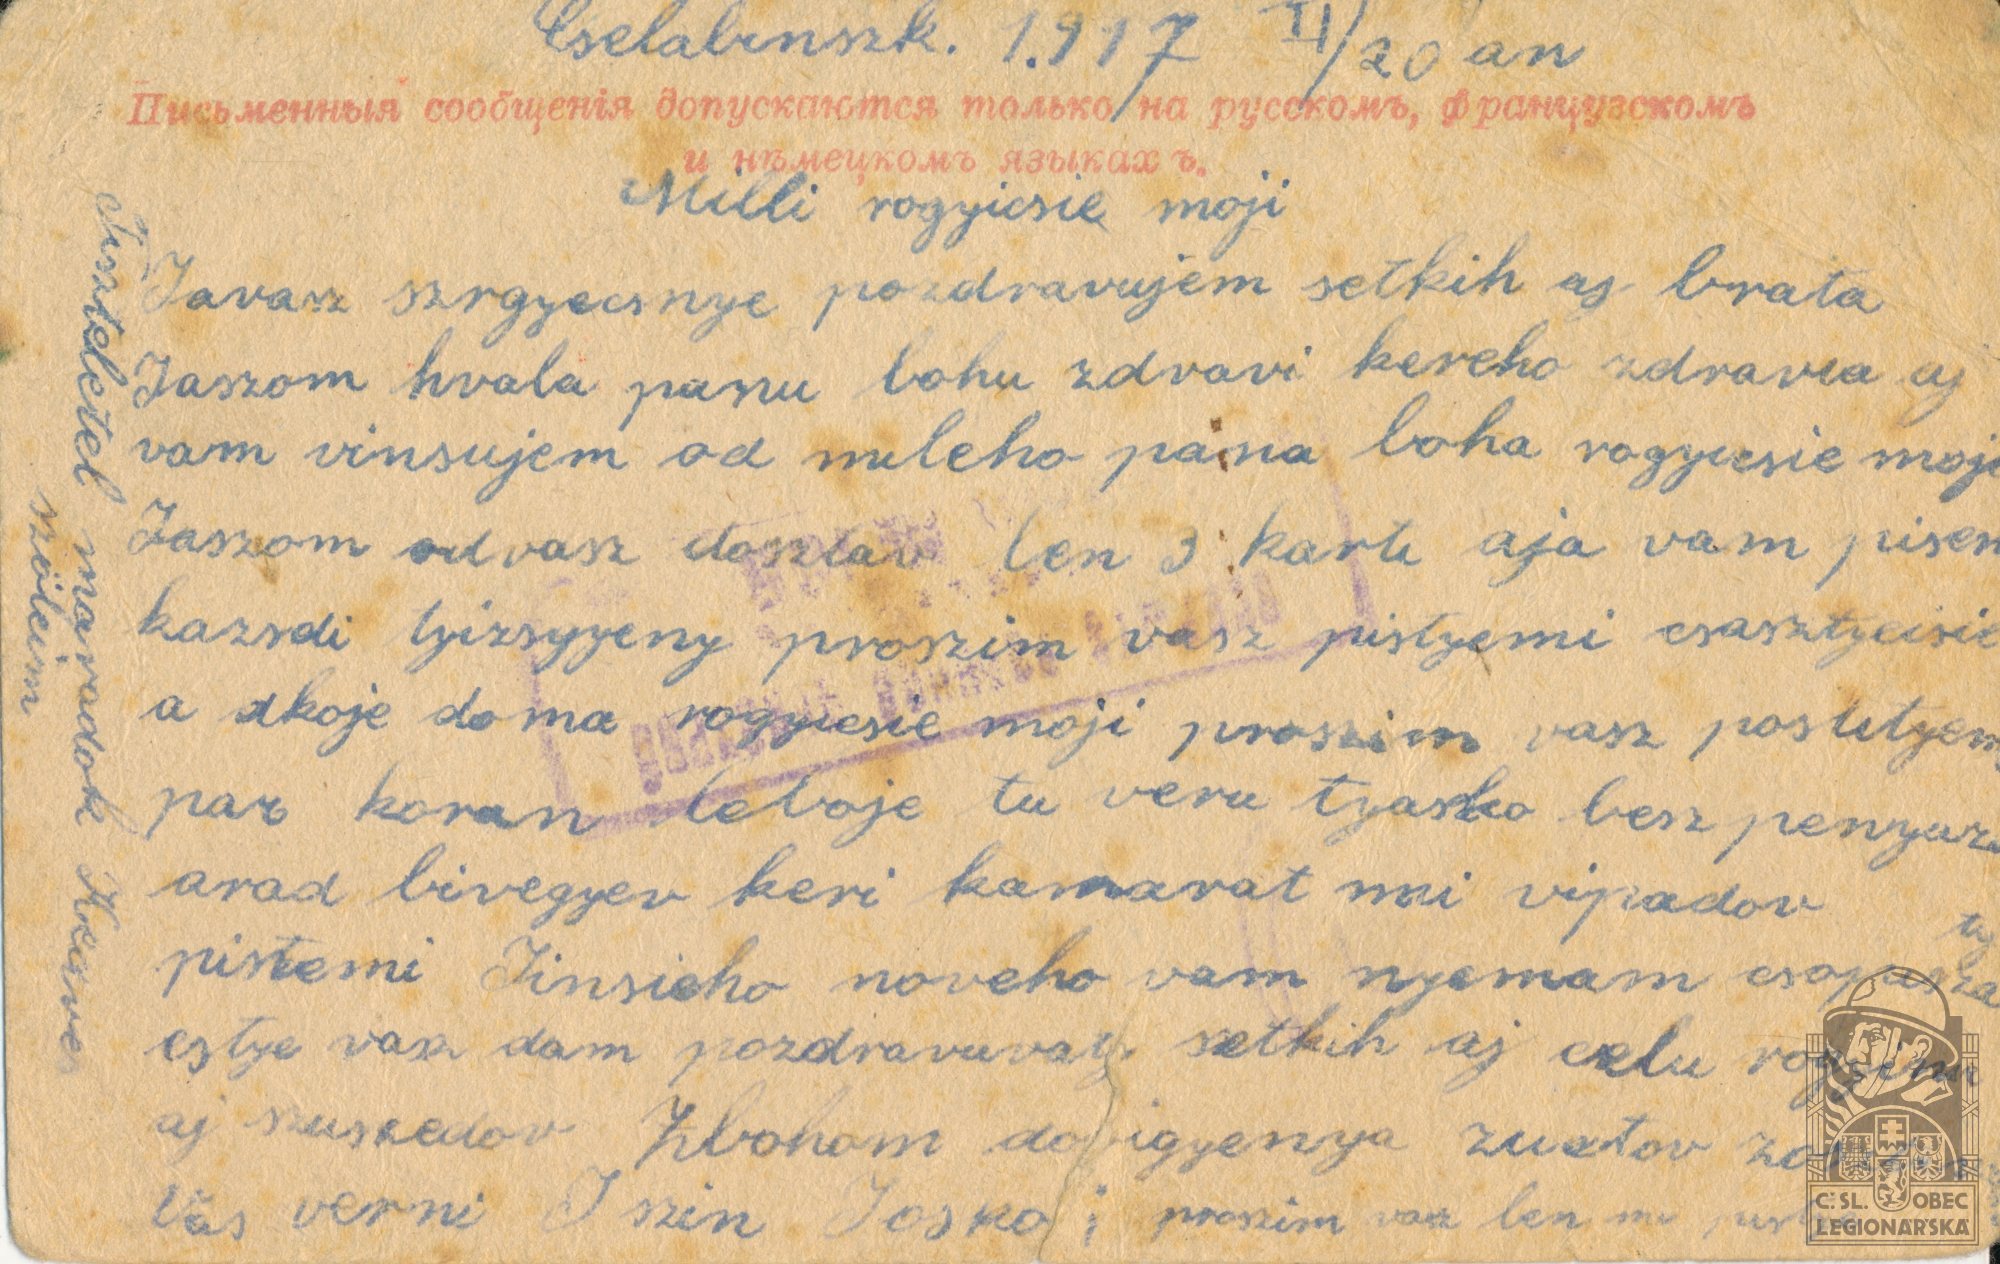 Cselabinszk. 1.917 II/20 an
Письменныя сообщенія допускаются только на русскомъ, французскомъ
и нѣмецкомъ языкахъ.
Milli rogyicsie moji
Javasz szrgyecsnye pozdravujem setkih aj brata
Jaszom hvala panu bohu zdravi kereho zdravia aj
vam vinsujem od mileho pana boha rogyicsie moje
Jaszom odvasz dosztav len 3 karti aja vam pisem
kazsdi tyizsgyeny proszim vasz pistyemi csasztyeisie
a dkoje doma rogyicsie moji proszim vasz poslityemi
par koran leboje tu veru tyasko besz penyazi
arad bivegyev keri kamarat mi vipadov
pistemi Jinsieho noveho vam nyemam csopiszat
estye vasz dam pozdravuvaty setkih aj celu
aj szuszedov Zbohom dovigyenya zuctov
Vas verni Iszin Josko i proszim vasz len mi
Tiszteletel maradok Kedves
szöleim
C̆SL. OBEC
LEGIONÁŘSKÁ